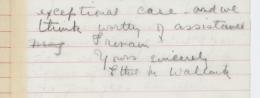 exceptional case and we
think worthy of assistance
I remain
Yours sincerely
Ethel M Wallock